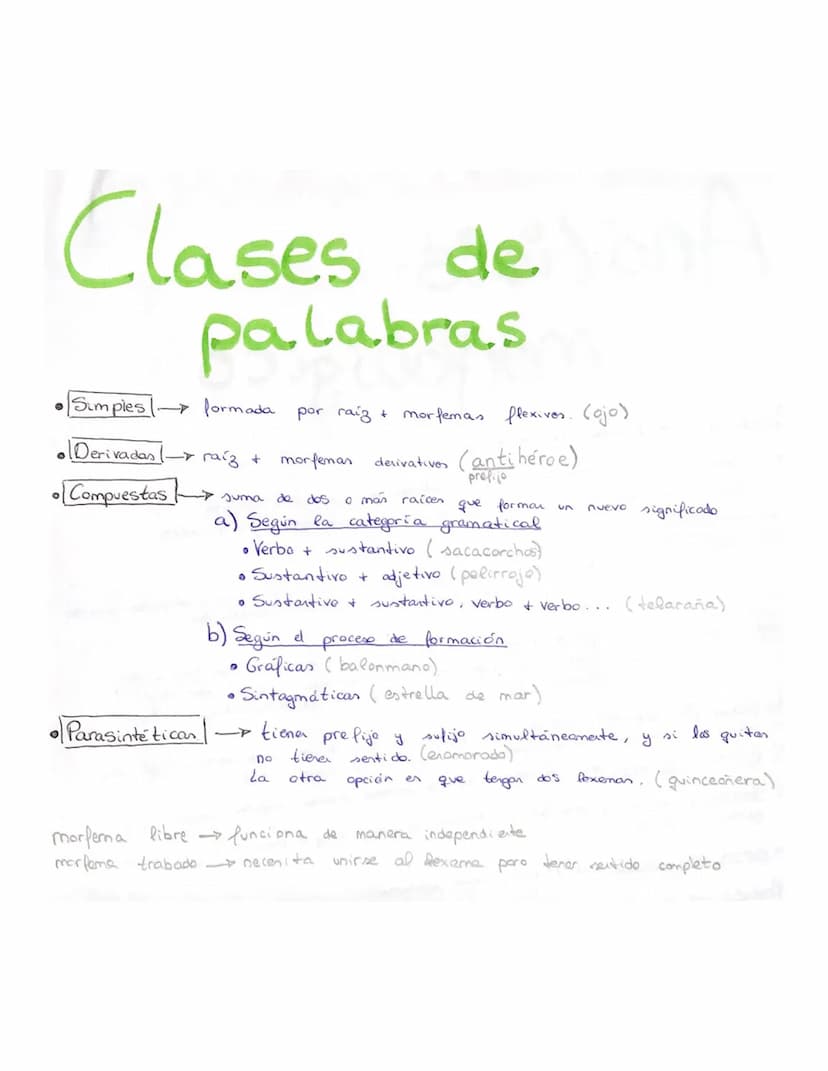 Clases de
palabras
• Simples → formada por raíz + morfemas flexivos. (ojo)
• Derivadas → raíz + morfemas derivativos (antihéroe)
prefijo
• Compuestas → suma de dos o más raíces que forman un nuevo significado
a) Según la categoría gramatical
• Verbo + sustantivo (sacacorchos)
• Sustantivo + adjetivo (pelirrojo)
• Sustantivo + sustantivo, verbo + verbo... (telaraña)
b) Según el proceso de formación
• Gráficas (balonmano)
• Sintagmáticas (estrella de mar)
• Parasintéticas → tienen prefijo y sufijo simultáneamente, y si los quitas
no tienen sentido. (enamorado)
La otra opción es que tengan dos lexemas. (quinceañera)
morfema libre → funciona de manera independiente
morfema trabado → necesita unirse al lexema para tener sentido completo